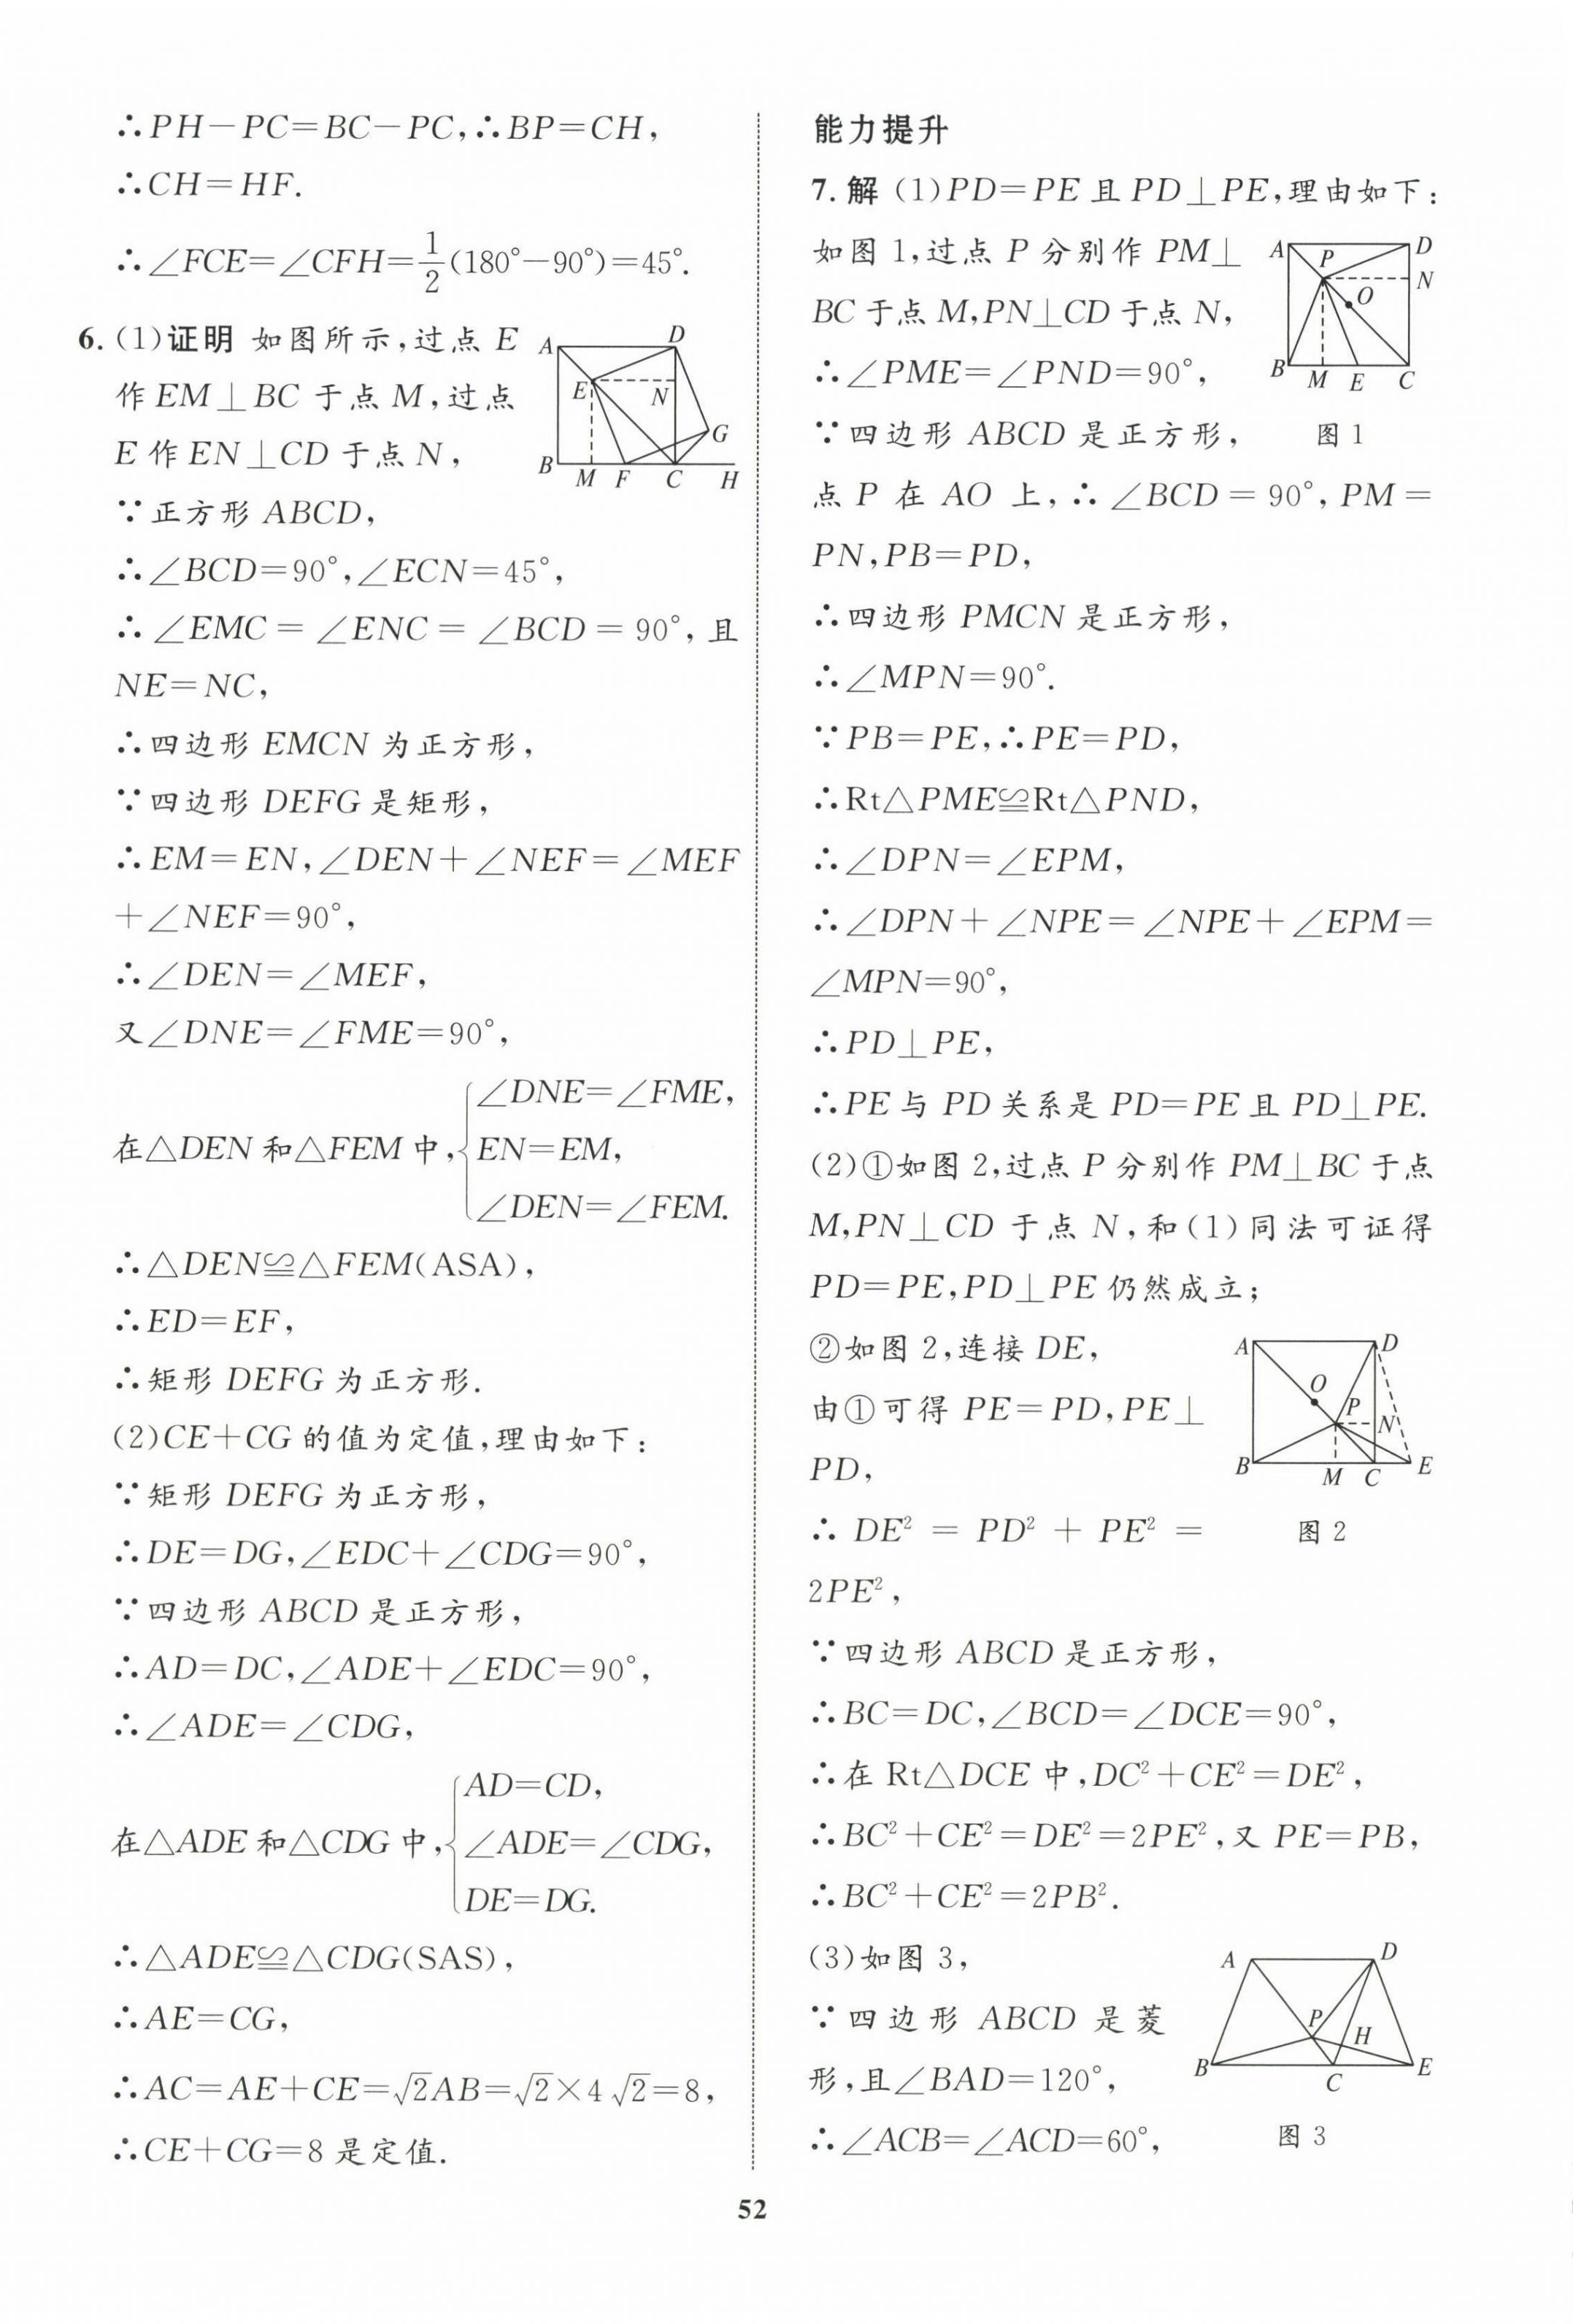 ∴PH－PC=BC－PC,∴BP=CH,
∴CH=HF.
∴∠FCE=∠CFH=$\frac{1}{2}$(180°－90°)=45°.
6.(1)证明 如图所示,过点 E
作 EM⊥BC 于点 M,过点
E 作 EN⊥CD 于点 N,
A D E N G B M F C H
∵正方形 ABCD,
∴∠BCD=90°,∠ECN=45°,
∴∠EMC=∠ENC=∠BCD=90°,且
NE=NC,
∴四边形 EMCN 为正方形,
∵四边形 DEFG 是矩形,
∴EM=EN,∠DEN+∠NEF=∠MEF
+∠NEF=90°,
∴∠DEN=∠MEF,
又∠DNE=∠FME=90°,
在△DEN 和△FEM 中,{∠DNE=∠FME,
EN=EM,
∠DEN=∠FEM.
∴△DEN≌△FEM(ASA),
∴ED=EF,
∴矩形 DEFG 为正方形.
(2)CE+CG 的值为定值,理由如下:
∵矩形 DEFG 为正方形,
∴DE=DG,∠EDC+∠CDG=90°,
∵四边形 ABCD 是正方形,
∴AD=DC,∠ADE+∠EDC=90°,
∴∠ADE=∠CDG,
在△ADE 和△CDG 中,{AD=CD,
∠ADE=∠CDG,
DE=DG.
∴△ADE≌△CDG(SAS),
∴AE=CG,
∴AC=AE+CE=√2AB=√2×4√2=8,
∴CE+CG=8 是定值.
能力提升
7.解 (1)PD=PE 且 PD⊥PE,理由如下:
如图 1,过点 P 分别作 PM⊥
BC 于点 M,PN⊥CD 于点 N,
∴∠PME=∠PND=90°,
∵四边形 ABCD 是正方形,
A D P N O B M E C
图 1
点 P 在 AO 上,∴∠BCD=90°,PM=
PN,PB=PD,
∴四边形 PMCN 是正方形,
∴∠MPN=90°.
∵PB=PE,∴PE=PD,
∴Rt△PME≌Rt△PND,
∴∠DPN=∠EPM,
∴∠DPN+∠NPE=∠NPE+∠EPM=
∠MPN=90°,
∴PD⊥PE,
∴PE 与 PD 关系是 PD=PE 且 PD⊥PE.
(2)①如图 2,过点 P 分别作 PM⊥BC 于点
M,PN⊥CD 于点 N,和(1)同法可证得
PD=PE,PD⊥PE 仍然成立;
②如图 2,连接 DE,
由①可得 PE=PD,PE⊥
PD,
A D O P N B M C E
图 2
∴DE²=PD²+PE²=
2PE²,
∵四边形 ABCD 是正方形,
∴BC=DC,∠BCD=∠DCE=90°,
∴在 Rt△DCE 中,DC²+CE²=DE²,
∴BC²+CE²=DE²=2PE²,又 PE=PB,
∴BC²+CE²=2PB².
(3)如图 3,
∵四边形 ABCD 是菱
形,且∠BAD=120°,
∴∠ACB=∠ACD=60°,
A D P H B C E
图 3
52